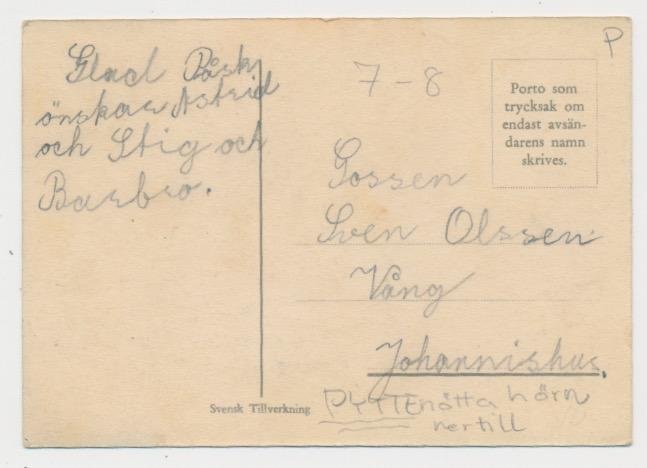 Glad Påsk
önskar Astrid
och Stig och
Barbro.
P
7-8
Porto som
trycksak om
endast avsän-
darens namn
skrives.
Gossen
Sven Olssen
Vång
Johannishus.
Svensk Tillverkning
PYTTEnötta hörn
nertill